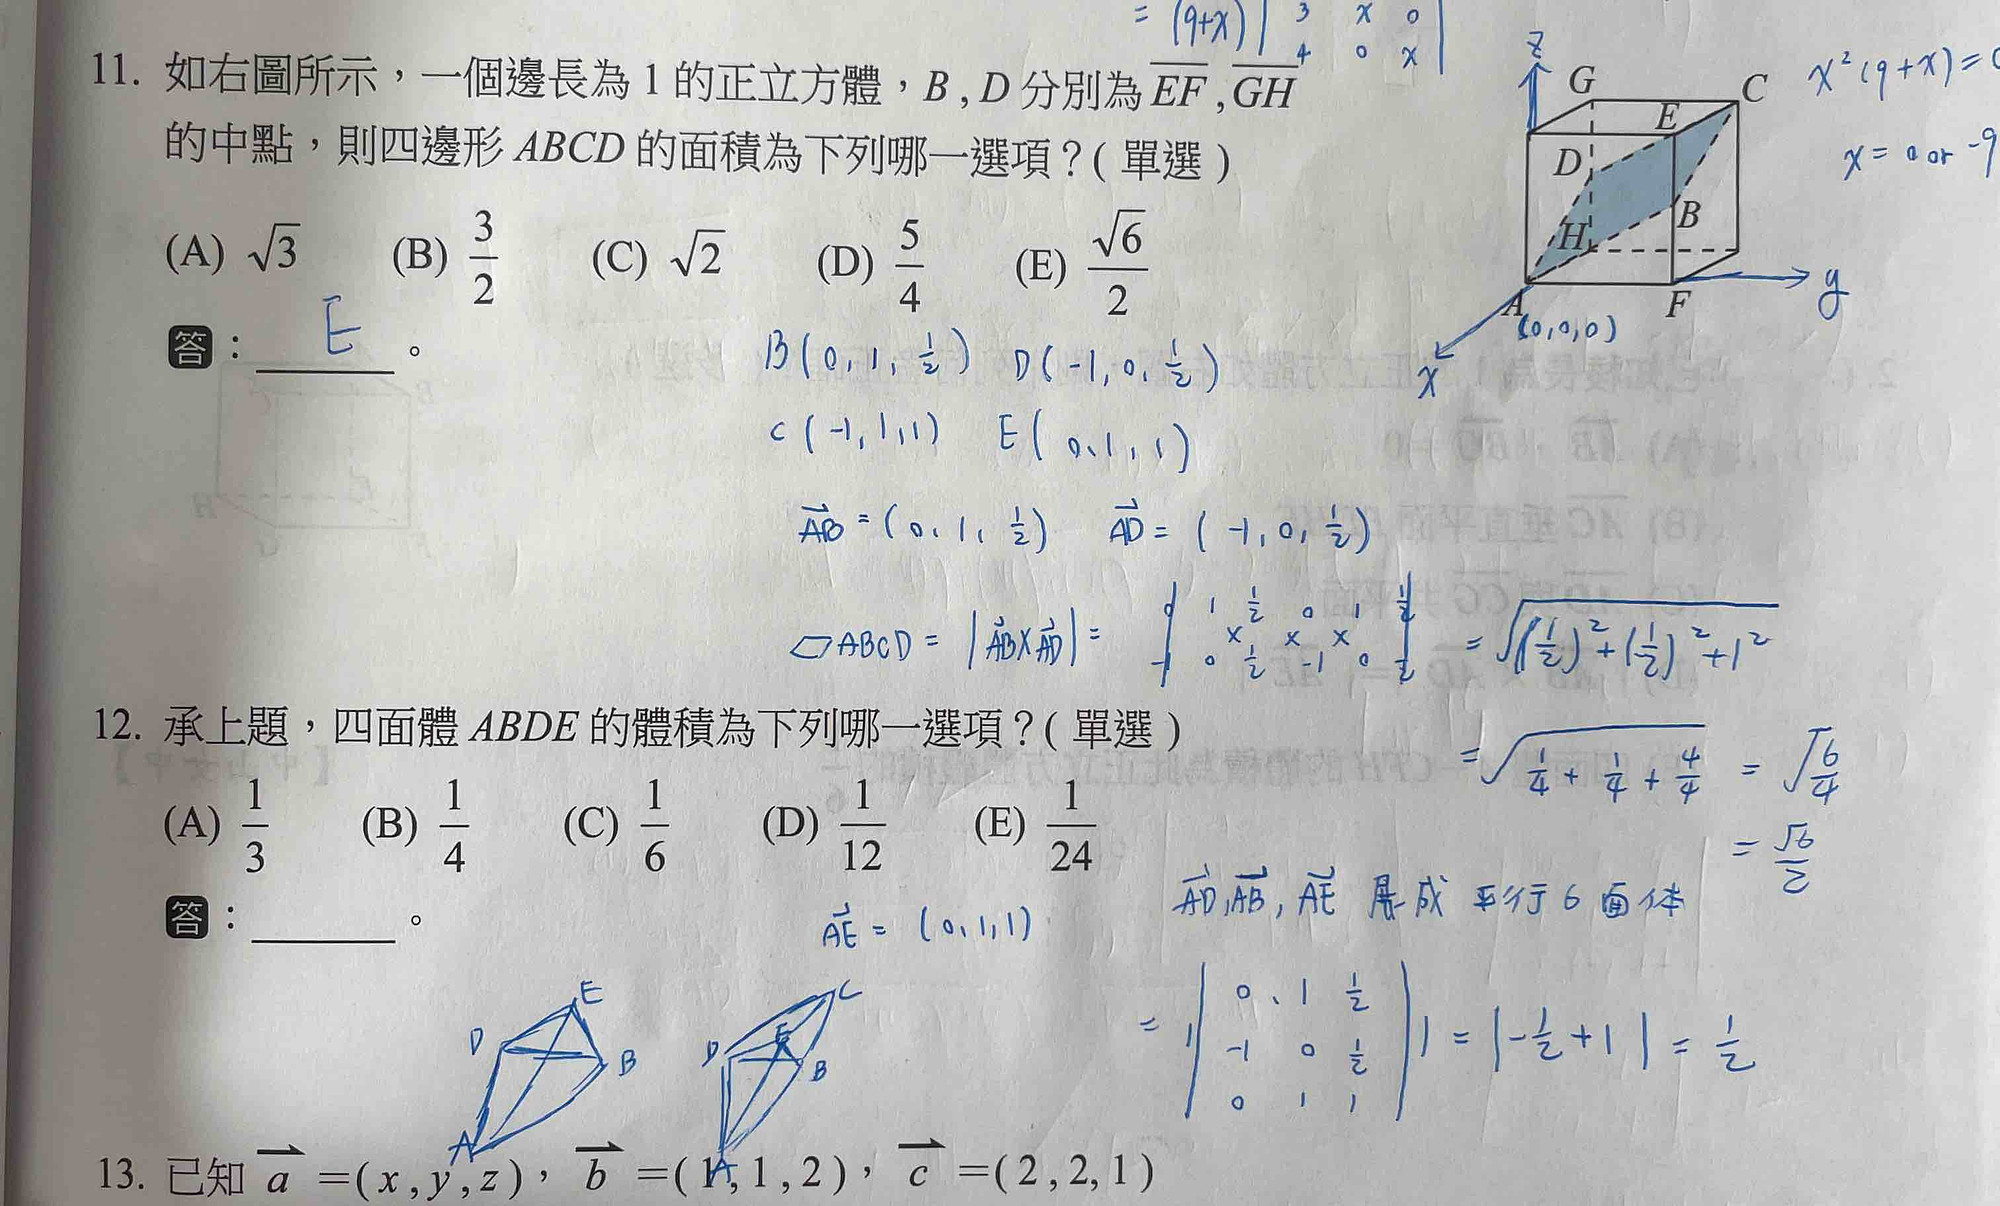 = (9+x) | 3 x 0
4 0 x |
11. 如右圖所示,一個邊長為 1 的正立方體,B , D 分別為 EF , GH
的中點,則四邊形 ABCD 的面積為下列哪一選項?( 單選 )
(A) √3 (B) 3/2 (C) √2 (D) 5/4 (E) √6/2
答: E 。
z
G C
E
D
B
H
A F
(0,0,0)
y
x
x²(9+x)=0
x = 0 or -9
B(0,1,1/2) D(-1,0,1/2)
C(-1,1,1) E(0,1,1)
AB = (0,1,1/2) AD = (-1,0,1/2)
▱ABCD = |AB×AD| = | 0 1 1/2 0 1 1/2
-1 0 1/2 -1 0 1/2 | = √((1/2)²+(1/2)²+1²)
= √(1/4+1/4+4/4) = √(6/4)
= √6/2
12. 承上題,四面體 ABDE 的體積為下列哪一選項?( 單選 )
(A) 1/3 (B) 1/4 (C) 1/6 (D) 1/12 (E) 1/24
答: 。
AE = (0,1,1)
AD,AB,AE 展成 平行6面体
= || 0 1 1/2
-1 0 1/2
0 1 1 || = |-1/2+1| = 1/2
E
D
B
A
C
D E
B
A
13. 已知 a =(x,y,z),b =(1,1,2),c =(2,2,1)